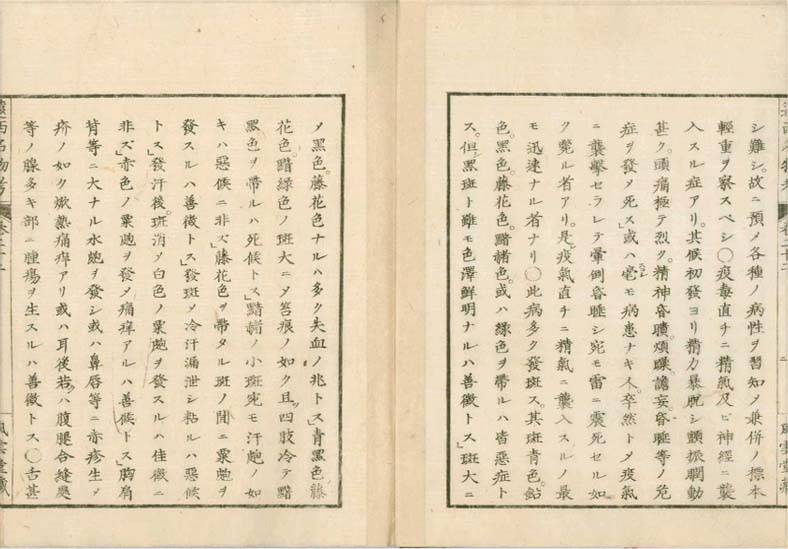 シ難シ。故ニ預メ各種ノ病性ヲ習知メ兼併ノ標本
輕重ヲ察スベシ〇疫毒直チニ精氣及ヒ神經ニ襲
入スル症アリ。其候初發ヨリ精力暴脱シ顫振瞤動
甚ク。頭痛極テ烈ク。精神昏聵。煩躁。譫妄。昏睡等ノ危
症ヲ發メ死ス」或ハ毫モ病患ナキ人。卒然トメ疫氣
ニ襲擊セラレテ暈倒昏睡シ宛モ雷ニ震死セル如
ク斃ル者アリ。是レ疫氣直チニ精氣ニ襲入スルノ最
モ迅速ナル者ナリ〇此病多ク發斑ス。其斑青色。鉛
色。黑色。藤花色。黯緒色。或ハ綠色ヲ帶ルハ皆惡症ト
ス。但シ黑斑ト雖モ色澤鮮明ナルハ善徵トス」斑大ニ
メ黑色。藤花色ナルハ多ク失血ノ兆トス」青黑色藤
花色。黯綠色ノ斑大ニメ笞痕ノ如ク且ツ四肢冷テ黯
黑色ヲ帶ルハ死候トス」黯緒ノ小斑宛モ汗皰ノ如
キハ惡候ニ非ズ」藤花色ヲ帶タル斑ノ間ニ粟皰ヲ
發スルハ善徵トス」發斑メ冷汗漏泄シ粘ルハ惡候
トス」發汗後。斑消メ白色ノ粟皰ヲ發スルハ佳徵ニ
非ズ」赤色ノ粟皰ヲ發メ痛痒アルハ善候トス」胸肩
背等ニ大ナル水皰ヲ發シ或ハ鼻唇等ニ赤疹生メ
疥ノ如ク焮熱痛痒アリ或ハ耳後若クハ腹腿合縫處
等ノ腺多キ部ニ腫瘍ヲ生スルハ善徵トス〇舌甚
遠西名物考
卷二十二
風雲堂藏